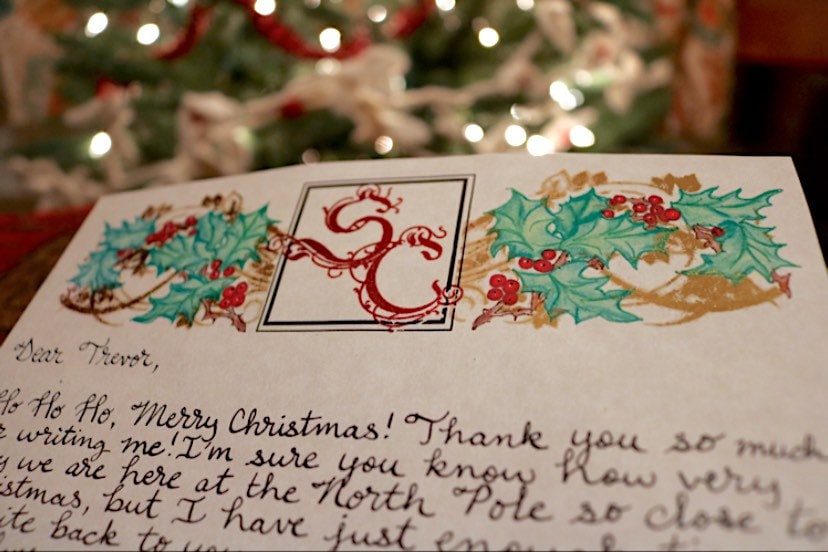 SC
Dear Trevor,
Ho Ho Ho, Merry Christmas! Thank you so much
writing me! I'm sure you know how very
we are here at the North Pole so close to
but I have just enough
back to